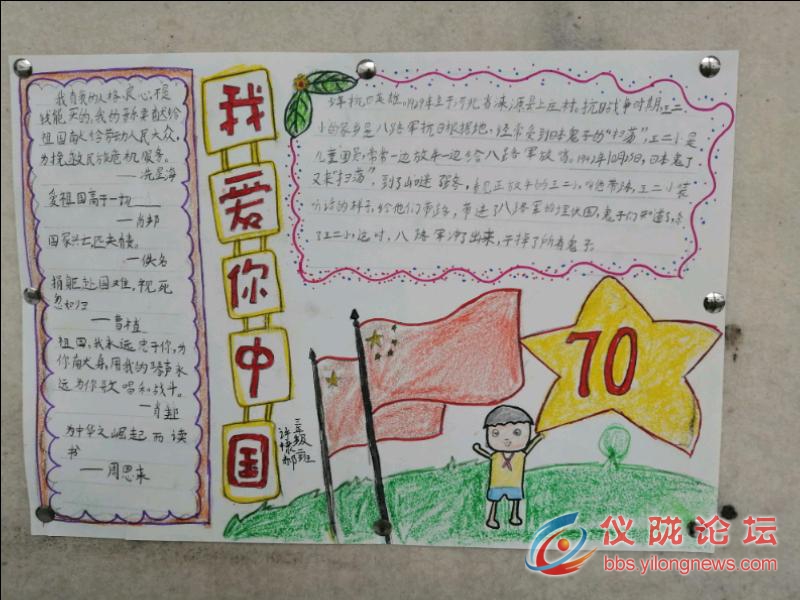 我自我的人格良心,不是
钱能买的,我的音乐奉献给
祖国献给劳动人民大众,
为挽救民族危机服务。
——冼星海
爱祖国高于一切
——肖邦
国家兴亡匹夫有责。
——佚名
捐躯赴国难,视死
忽如归
——曹植
祖国,我永远忠于你,为
你献身,用我的琴声永
远为你歌唱和战斗。
——肖邦
为中华之崛起而读
书
——周恩来
我爱你中国
抗日英雄,1929年生于河北省涞源县上庄村,抗日战争时期,王二
小的家乡是八路军抗日根据地,经常受到日本鬼子的"扫荡",王二小是
儿童团员,常常一边放牛一边给八路军放哨。1942年10月25日,日本鬼子
又来"扫荡",到了山迷路,王二小装
听话的样子给他们带路,带进了八路军的埋伏圈,鬼子们知道了,杀
了王二小,这时,八路军冲了出来,干掉了所有鬼子。
70
三年级
二班
仪陇论坛
bbs.yilongnews.com